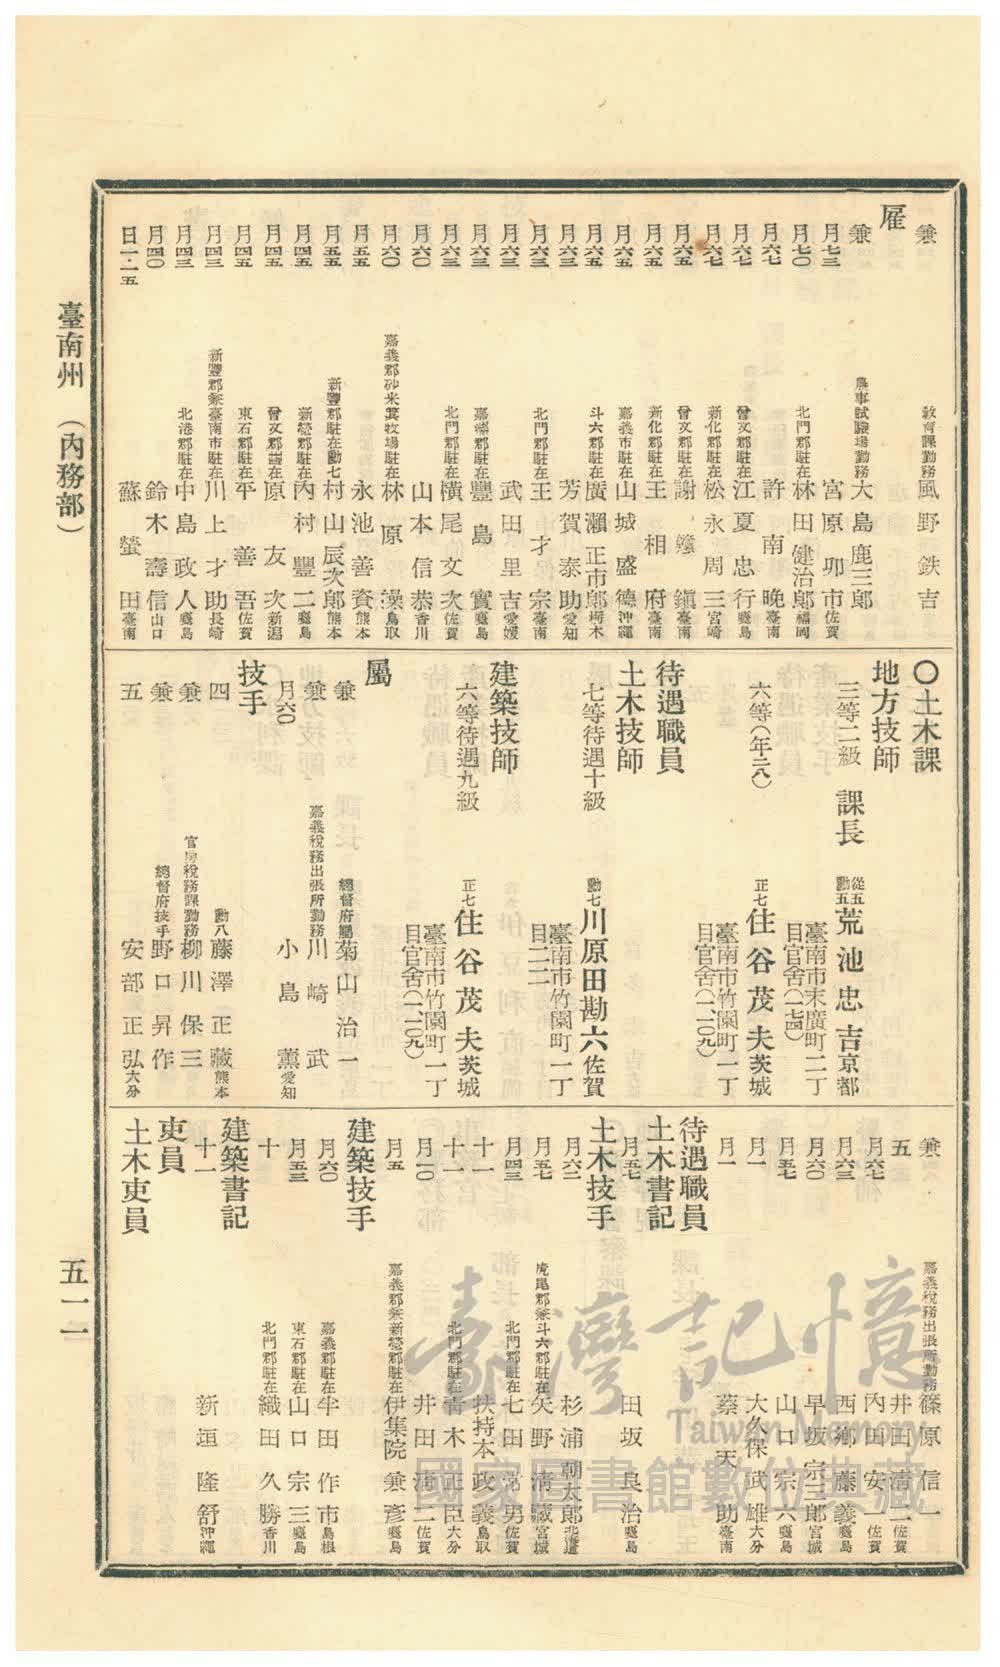 兼 敎育課勤務 風野鉄吉
雇
兼 農事試驗場勤務 大島鹿三郎
月七三 宮原卯市 佐賀
月七〇 北門郡駐在 林田健治郎 福岡
月六七 許南晚 臺南
月六七 曾文郡駐在 江夏忠行 鹿兒島
月六七 新化郡駐在 松永周三 宮崎
月六五 曾文郡駐在 謝鏹鎭 臺南
月六五 新化郡駐在 王相府 臺南
月六五 嘉義市駐在 山城盛德 沖繩
月六五 斗六郡駐在 廣瀨正市郎 栃木
月六三 芳賀泰助 愛知
月六三 北門郡駐在 王才宗 臺南
月六三 武田里吉 愛媛
月六三 嘉義郡駐在 豐島實 鹿兒島
月六三 北門郡駐在 橫尾文次 佐賀
月六〇 山本信恭 香川
月六〇 嘉義郡砂米箕牧場駐在 林原澡 鳥取
月五五 永池善資 熊本
月五五 新豐郡駐在勳七 村山辰次郎 熊本
月四五 新營郡駐在 內村豐二 鹿兒島
月四五 曾文郡駐在 原友次 新潟
月四五 東石郡駐在 平善吾 佐賀
月四三 新豐郡兼臺南市駐在 川上才助 長崎
月四三 北港郡駐在 中島政人 鹿兒島
月四〇 鈴木壽信 山口
日一・二五 蘇螢田 臺南
〇土木課
地方技師
三等二級 課長 從五勳五 荒池忠吉 京都
臺南市末廣町二丁目官舍(一七四)
六等(年二八) 正七 住谷茂夫 茨城
臺南市竹園町一丁目官舍(一、一〇九)
待遇職員
土木技師
七等待遇十級 勳七 川原田勘六 佐賀
臺南市竹園町一丁目二二
建築技師
六等待遇九級 正七 住谷茂夫 茨城
臺南市竹園町一丁目官舍(一、一〇九)
屬
兼 總督府屬 菊山治一
兼 嘉義稅務出張所勤務 川崎武
月六〇 小島薰 愛知
技手
四 勳八 藤澤正藏 熊本
兼 官房稅務課勤務 柳川保三
兼 總督府技手 野口昇作
五 安部正弘 大分
兼 嘉義稅務出張所勤務 篠原信一
五 井田淸一 佐賀
月六七 內田安一 佐賀
月六三 西鄕藤義 鹿兒島
月六〇 早坂宗三郎 宮城
月五七 山口宗六 鹿兒島
月一 大久保武雄 大分
月一 蔡天助 臺南
待遇職員
土木書記
月五七 田坂良治 鹿兒島
土木技手
月六二 杉浦朝太郎 北海道
月五七 虎尾郡兼斗六郡駐在 矢野淸藏 宮城
月四三 北門郡駐在 七田常男 佐賀
十一 扶持本政義 鳥取
十一 北門郡駐在 靑木正臣 大分
月一〇 井田滿二 佐賀
月五 嘉義郡兼新營郡駐在 伊集院兼彥 鹿兒島
建築技手
月六〇 嘉義郡駐在 半田作市 島根
月五三 東石郡駐在 山口宗三 鹿兒島
十 北門郡駐在 織田久勝 香川
建築書記
十一 新垣隆舒 沖繩
吏員
土木吏員
臺南州(內務部)
五一一
臺灣記憶
Taiwan Memory
國家圖書館數位典藏